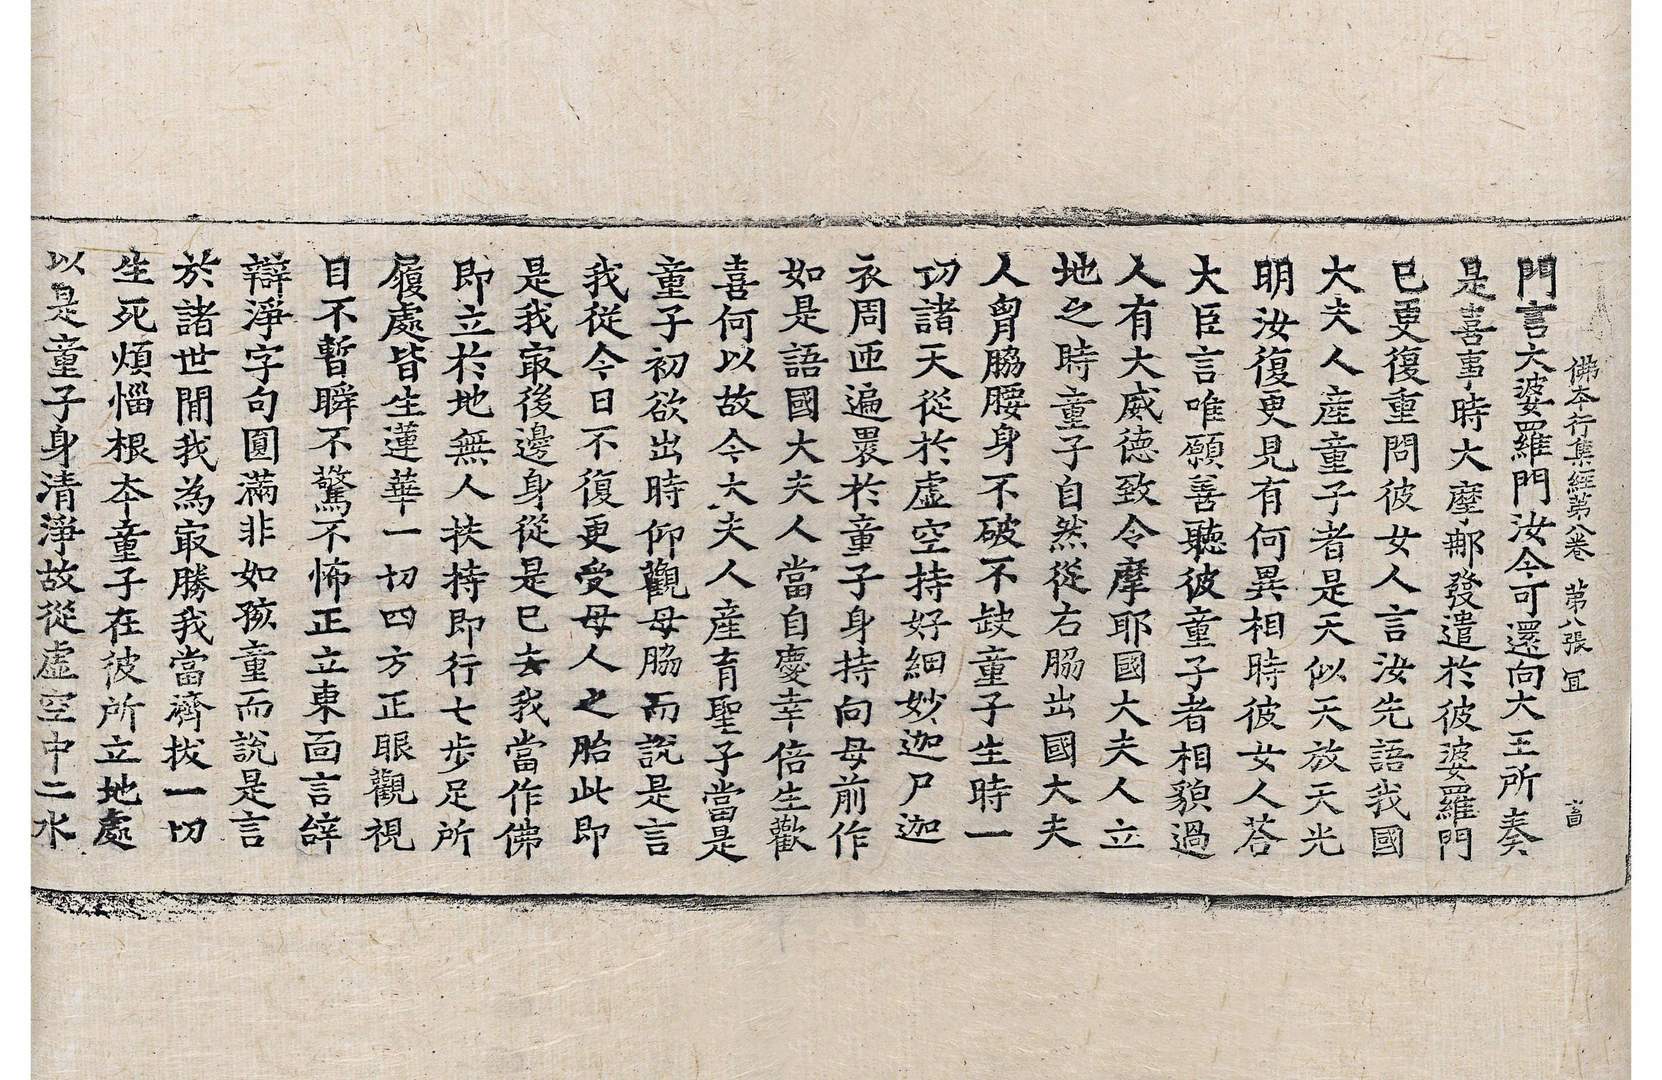 佛本行集經第八卷 第八張 宜
門言大婆羅門汝今可還向大王所奏
是喜事時大摩那發遣於彼婆羅門
已更復重問彼女人言汝先語我國
大夫人產童子者是天似天放天光
明汝復更見有何異相時彼女人荅
大臣言唯願善聽彼童子者相貌過
人有大威德致令摩耶國大夫人立
地之時童子自然從右脇出國大夫
人胷脇腰身不破不缺童子生時一
切諸天從於虛空持好細妙迦尸迦
衣周匝遍褁於童子身持向母前作
如是語國大夫人當自慶幸倍生歡
喜何以故今大夫人產育聖子當是
童子初欲出時仰觀母脇而說是言
我從今日不復更受母人之胎此即
是我㝡後邊身從是已去我當作佛
即立於地無人扶持即行七步足所
履處皆生蓮華一切四方正眼觀視
目不暫瞬不驚不怖正立東面言辭
辯淨字句圓滿非如孩童而說是言
於諸世間我為㝡勝我當濟拔一切
生死煩惱根本童子在彼所立地處
以是童子身清淨故從虛空中二水